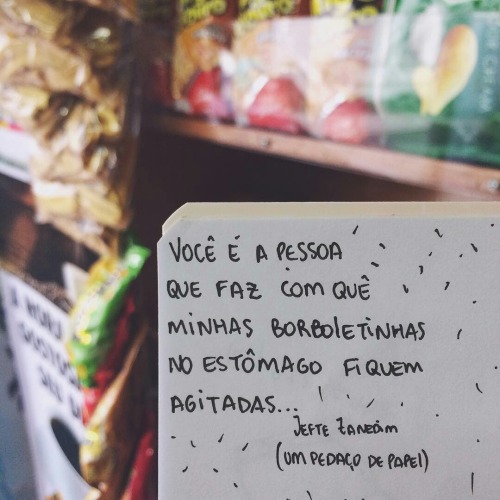 VOCÊ E A PESSOA
QUE FAZ COM QUÊ
MINHAS BORBOLETINHAS
NO ESTÔMAGO FIQUEM
AGITADAS...
JEFTE ZANEDIM
(UM PEDAÇO DE PAPEL)